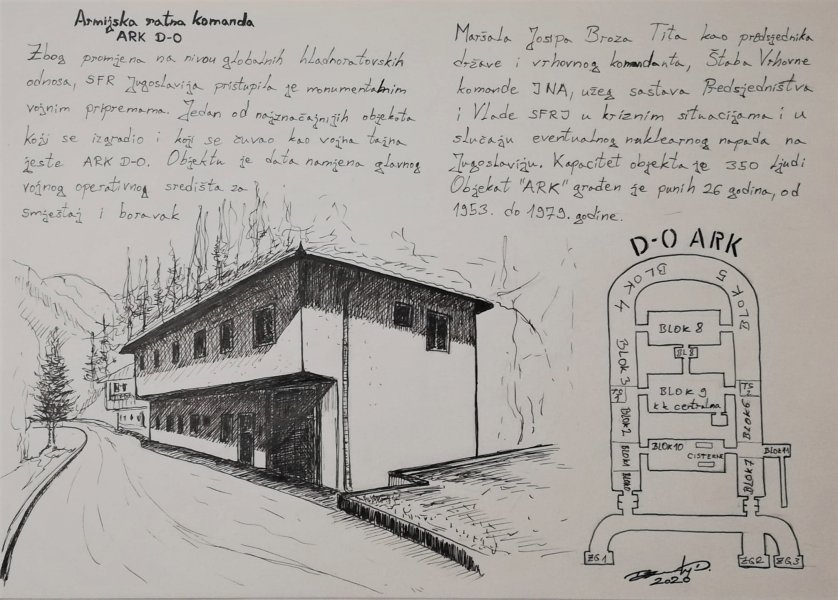 Armijska ratna komanda
ARK D-O
Zbog promjena na nivou globalnih hladnoratovskih
odnosa, SFR Jugoslavija pristupila je monumentalnim
vojnim pripremama. Jedan od najznačajnijih objekata
koji se izgradio i koji se čuvao kao vojna tajna
jeste ARK D-O. Objektu je data namjena glavnog
vojnog operativnog središta za
smještaj i boravak
Maršala Josipa Broza Tita kao predsjednika
države i vrhovnog komandanta, Štaba Vrhovne
komande JNA, užeg sastava Predsjedništva
i Vlade SFRJ u kriznim situacijama i u
slučaju eventualnog nuklearnog napada na
Jugoslaviju. Kapacitet objekta je 350 ljudi
Objekat "ARK" građen je punih 26 godina, od
1953. do 1979. godine.
D-O ARK
BLOK 4
BLOK 5
BLOK 8
BL 8
BLOK 3
BLOK 9
kk centralna
BLOK 6
BLOK 2
BLOK 10
CISTERNE
BLOK 11
BLOK 1
BLOK 7
ZG 1
ZG 2
ZG 3
2020